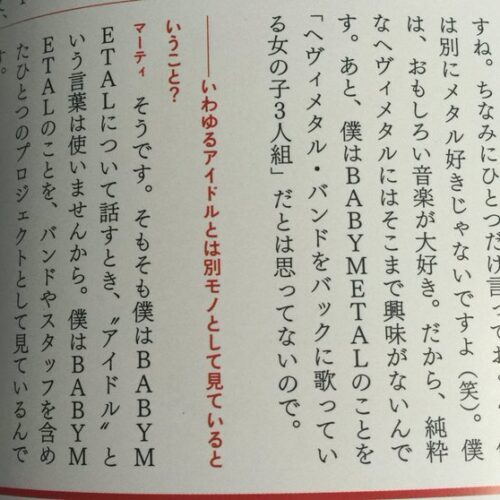 すね。ちなみにひとつだけ言ってお
は別にメタル好きじゃないですよ（笑）。僕
は、おもしろい音楽が大好き。だから、純粋
なヘヴィメタルにはそこまで興味がないんで
す。あと、僕はBABYMETALのことを
「ヘヴィメタル・バンドをバックに歌ってい
る女の子3人組」だとは思ってないので。
――いわゆるアイドルとは別モノとして見ていると
いうこと？
マーティ そうです。そもそも僕はBABYM
ETALについて話すとき、〝アイドル〟と
いう言葉は使いませんから。僕はBABYM
ETALのことを、バンドやスタッフを含め
たひとつのプロジェクトとして見ているんで
す。